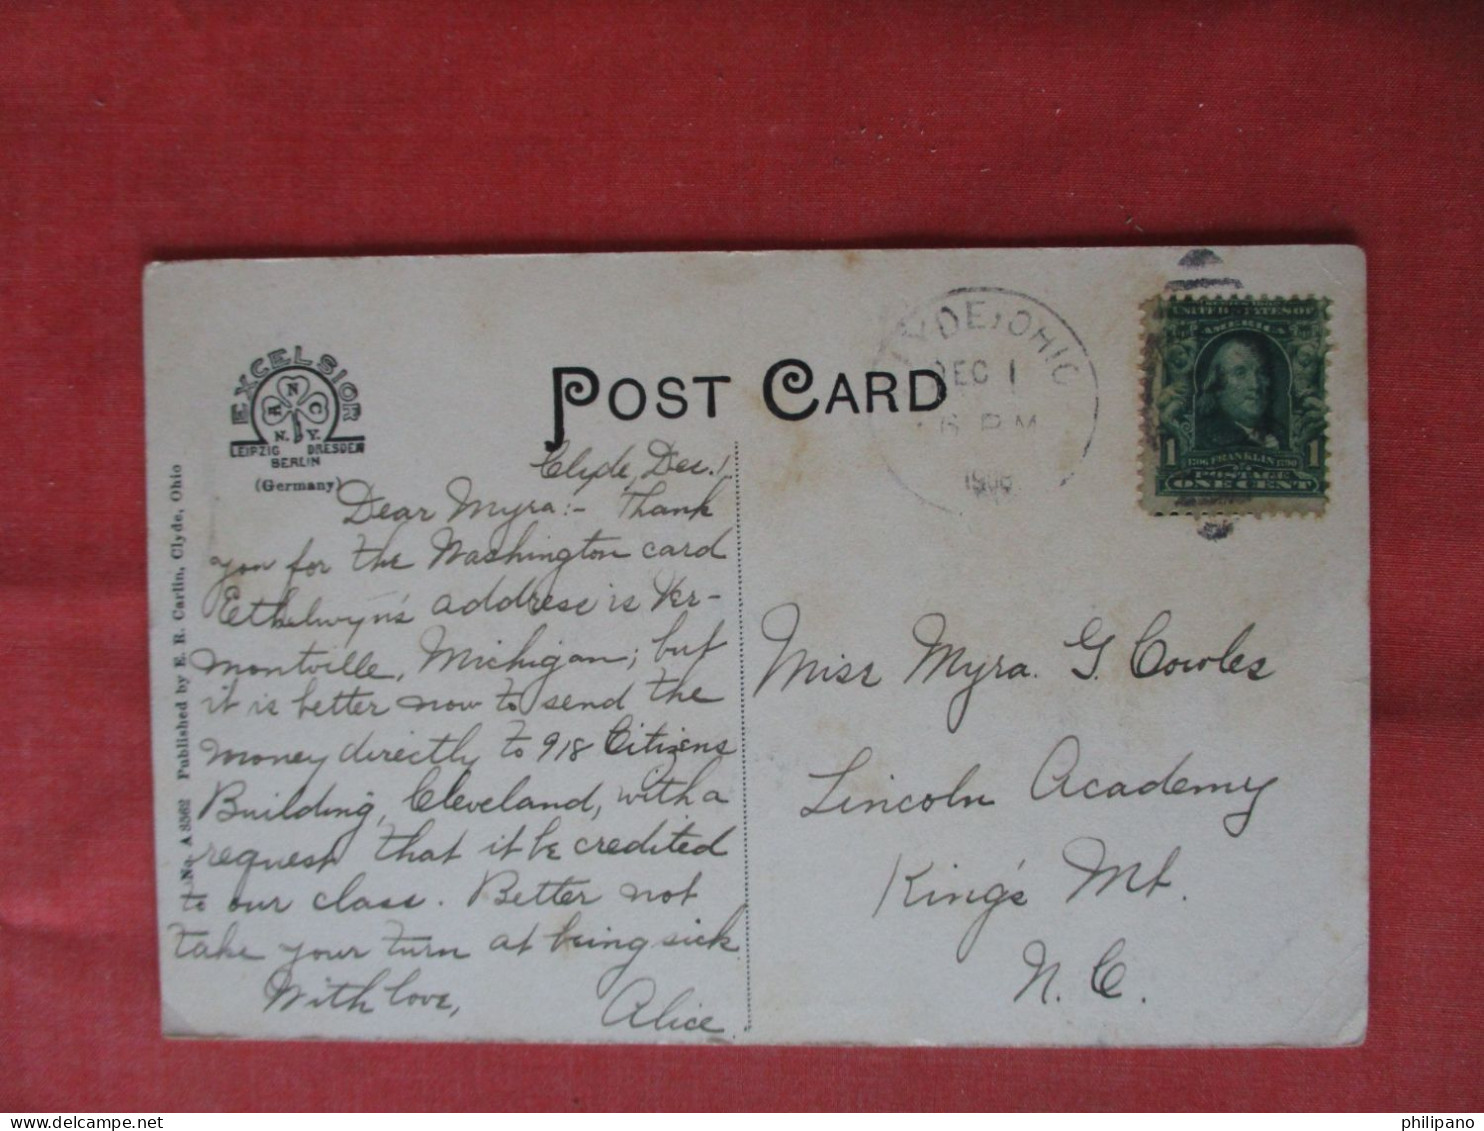 EXCELSIOR
A N C
N. Y.
LEIPZIG DRESDEN
BERLIN
(Germany)
No. A 8562 Published by E. R. Carlin, Clyde, Ohio
POST CARD
CLYDE, OHIO
DEC 1
6 P.M.
UNITED STATES OF
AMERICA
1 1
1706 FRANKLIN 1790
POSTAGE
ONE CENT
Clyde, Dec. 1,
Dear Myra:- Thank
you for the Washington card
Ethelwyn's address is Ver-
montville, Michigan; but
it is better now to send the
money directly to 918 Citizens
Building, Cleveland, with a
request that it be credited
to our class. Better not
take your turn at being sick
With love,
Alice
Miss Myra. G. Cowles
Lincoln Academy
King's Mt.
N. C.
philipano